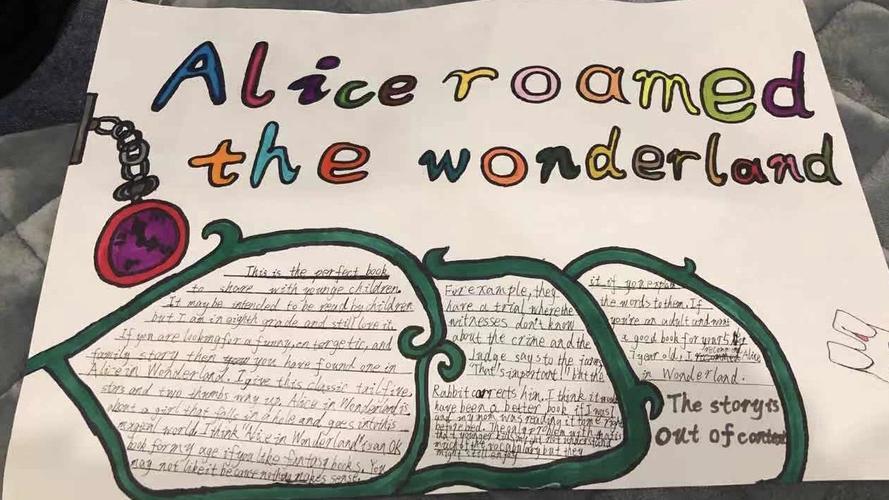 Alice roamed
the wonderland
This is the perfect book
to share with younge children.
It may be intended to be read by children
but I am in eighth grade and still love it.
If you are looking for a funny, entergetic, and
family story then you have found one in
Alice in Wonderland. I give this classic tail five
stars and two thumbs way up. Alice in Wonderland is
about a girl that falls in a hole and goes in this
magical world. I think "Alice in Wonderland" is an OK
book for my age if you like fantasy books. You
may not like it because nothing makes sense.
For example, they
have a trial where the
witnesses don't know
about the crime and the
Judge says to the jurors
"That's important!" but the
Rabbit corrects him. I think it
have been a better book if I was
and my mom was reading it to me
before bed. The only problem with
that younger kids might not understand
much of the vocabulary but they
might still enjoy
it if you explain
the words to them. If
you're an adult and want
a good book for your 5,6,
7 year old, I Alice
in Wonderland.
The story is
out of context